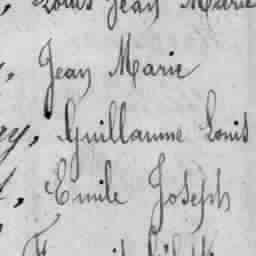 Louis Jean Marie
, Jean Marie
y, Guillaume Louis
, Emile Joseph